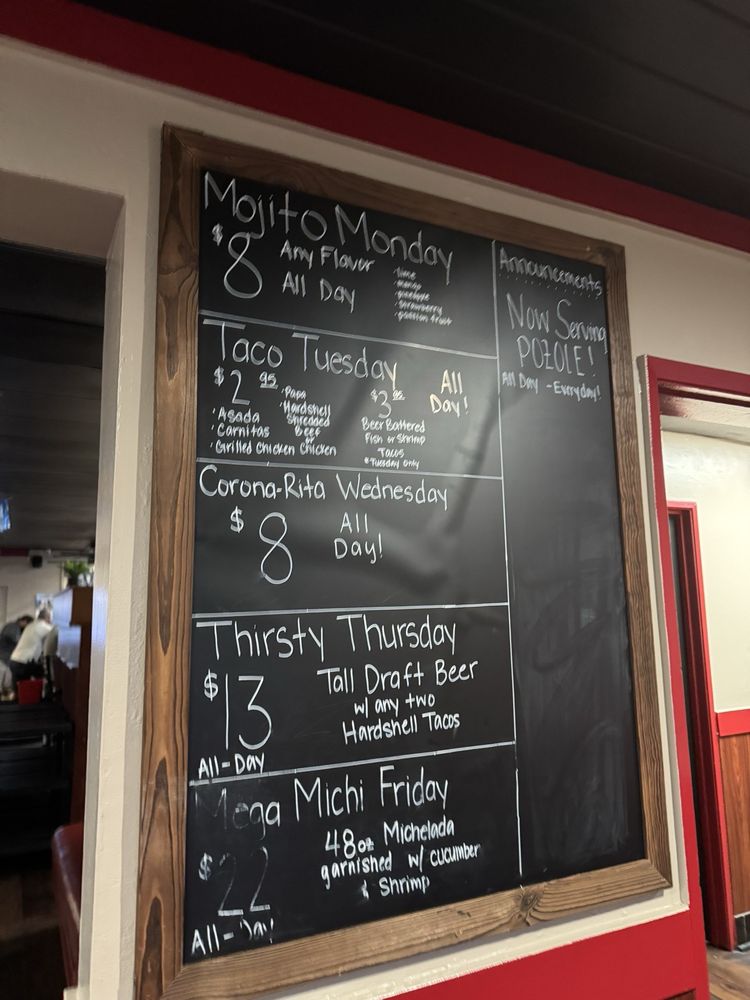 Mojito Monday
$8 Any Flavor
All Day
·lime
·mango
·pineapple
·strawberry
·passion fruit
Taco Tuesday
$2.95
·Asada
·Carnitas
·Grilled Chicken
·Papa
·Hardshell
Shredded
Beef
or
Chicken
$3.95
Beer Battered
Fish or Shrimp
Tacos
*Tuesday Only
All
Day!
Corona-Rita Wednesday
$8 All
Day!
Thirsty Thursday
$13
All-Day
Tall Draft Beer
w/ any two
Hardshell Tacos
Mega Michi Friday
$22
All-Day
48oz Michelada
garnished w/ cucumber
& Shrimp
Announcements
Now Serving
POZOLE!
All Day - Everyday!